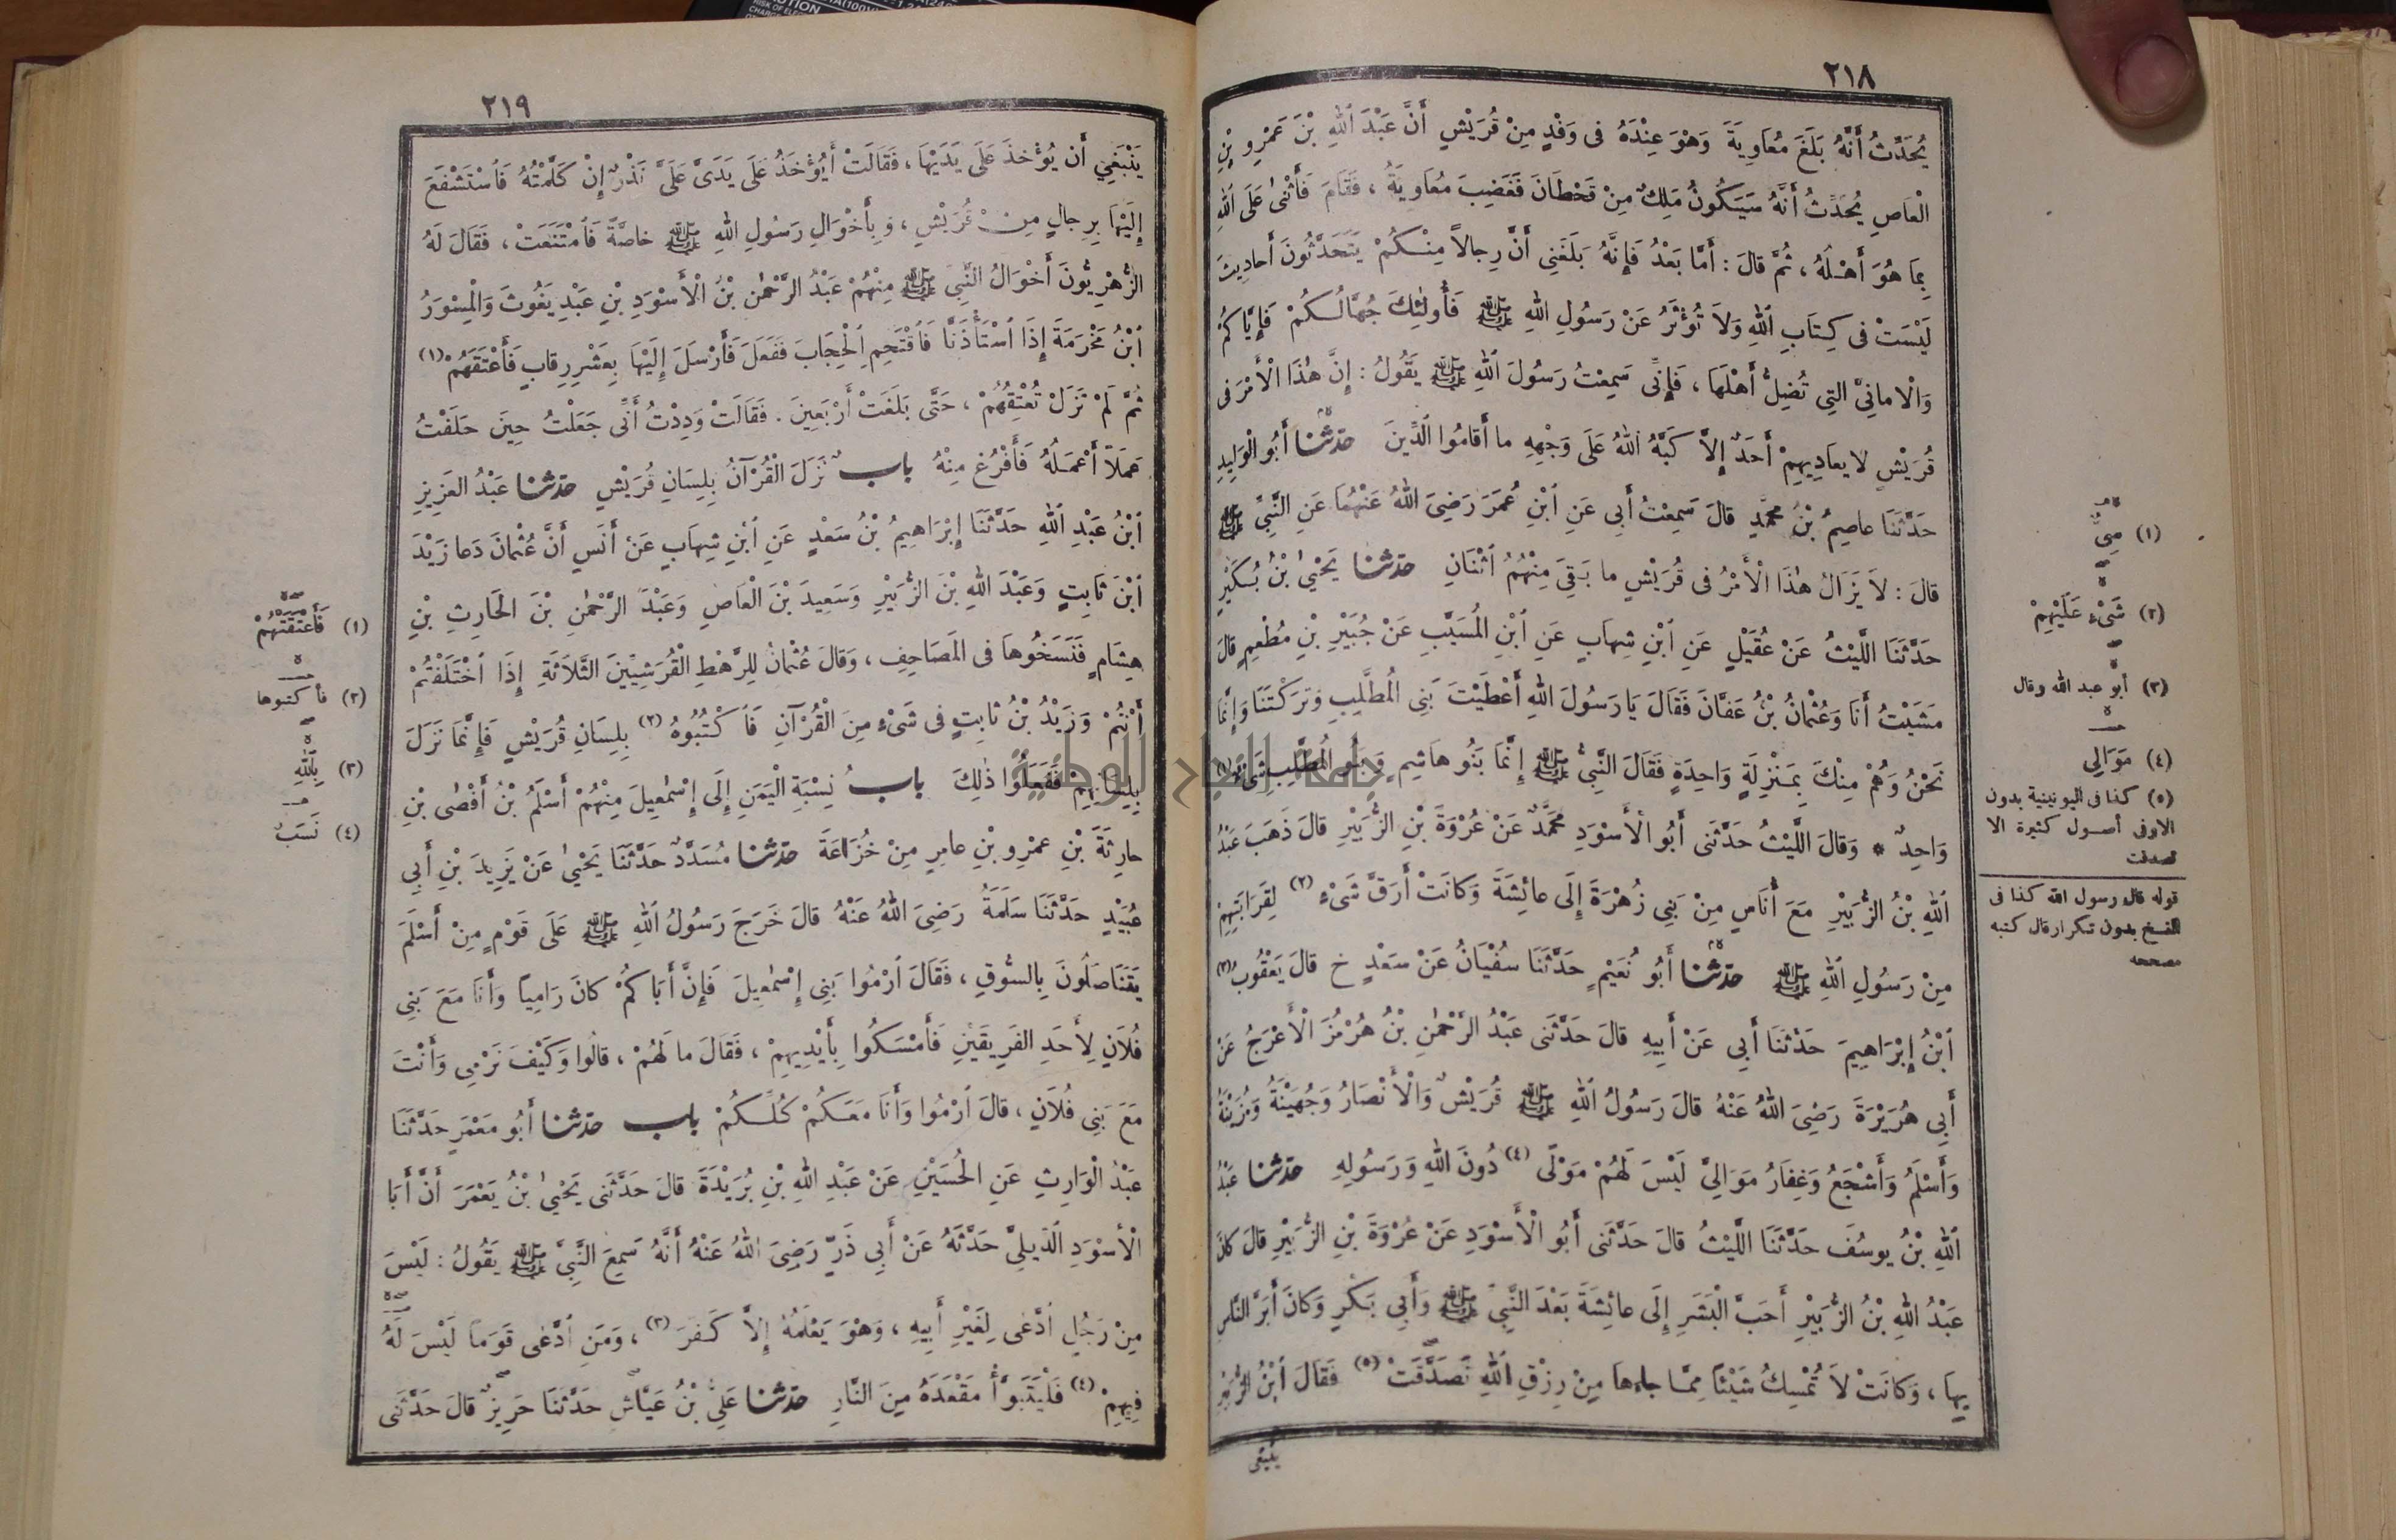 ٢١٨
يُحَدِّثُ أَنَّهُ بَلَغَ مُعَاوِيَةَ وَهْوَ عِنْدَهُ فى وَفْدٍ مِنْ قُرَيْشٍ أَنَّ عَبْدَ اللهِ بْنَ عَمْرِو بْنِ
الْعَاصِ يُحَدِّثُ أَنَّهُ سَيَكُونُ مَلِكٌ مِنْ قَحْطَانَ فَغَضِبَ مُعَاوِيَةُ ، فَقَامَ فَأَثْنىٰ عَلَى اللهِ
بِمَا هُوَ أَهْلُهُ ، ثُمَّ قالَ : أَمَّا بَعْدُ فَإِنَّهُ بَلَغَنِى أَنَّ رِجالاً مِنْكُمْ يَتَحَدَّثُونَ أَحادِيثَ
لَيْسَتْ فى كِتَابِ اللهِ وَلاَ تُؤْثَرُ عَنْ رَسُولِ اللهِ ﷺ فَأُولٰئِكَ جُهَّالُكُمْ فَإِيَّاكُمْ
وَالْامانِىَّ الَّتِى تُضِلُّ أَهْلَهَا ، فَإِنِّى سَمِعْتُ رَسُولَ اللهِ ﷺ يَقُولُ : إِنَّ هٰذَا الْأَمْرَ فى
قُرَيْشٍ لا يعادِيهِمْ أَحَدٌ إِلاَّ كَبَّهُ اللهُ عَلَى وَجْهِهِ ما أَقامُوا الدِّينَ حدّثنا أَبُو الْوَلِيدِ
حَدَّثَنَا عاصِمُ بْنُ مُحَمَّدٍ قالَ سَمِعْتُ أَبِى عَنِ ابْنِ عُمَرَ رَضِىَ اللهُ عَنْهُمَا عَنِ النَّبِىِّ ﷺ
قالَ : لاَ يَزَالُ هٰذَا الْأَمْرُ فى قُرَيْشٍ ما بَقِىَ مِنْهُمُ اثْنَانِ حدّثنا يَحْيىٰ بْنُ بُكَيْرٍ
حَدَّثَنَا اللَّيْثُ عَنْ عُقَيْلٍ عَنِ ابْنِ شِهَابٍ عَنِ ابْنِ الْمُسَيَّبِ عَنْ جُبَيْرِ بْنِ مُطْعِمٍ قالَ
مَشَيْتُ أَنَا وَعُثْمانُ بْنُ عَفَّانَ فَقَالَ يَا رَسُولَ اللهِ أَعْطَيْتَ بَنِى الْمُطَّلِبِ وَتَرَكْتَنَا وَإِنَّمَا
نَحْنُ وَهُمْ مِنْكَ بِمَنْزِلَةٍ وَاحِدَةٍ فَقَالَ النَّبِىُّ ﷺ إِنَّمَا بَنُو هَاشِمٍ وَبَنُو الْمُطَّلِبِ شَىْءٌ (١)
وَاحِدٌ * وَقالَ اللَّيْثُ حَدَّثَنِى أَبُو الْأَسْوَدِ مُحَمَّدٌ عَنْ عُرْوَةَ بْنِ الزُّبَيْرِ قالَ ذَهَبَ عَبْدُ
اللهِ بْنُ الزُّبَيْرِ مَعَ أُنَاسٍ مِنْ بَنِى زُهْرَةَ إِلَى عائِشَةَ وَكانَتْ أَرَقَّ شَىْءٍ (٢) لِقَرَابَتِهِمْ
مِنْ رَسُولِ اللهِ ﷺ حدّثنا أَبُو نُعَيْمٍ حَدَّثَنَا سُفْيَانُ عَنْ سَعْدٍ خ قالَ يَعْقُوبُ (٣)
ابْنُ إِبْرَاهِيمَ حَدَّثَنَا أَبِى عَنْ أَبِيهِ قالَ حَدَّثَنِى عَبْدُ الرَّحْمٰنِ بْنُ هُرْمُزَ الْأَعْرَجُ عَنْ
أَبِى هُرَيْرَةَ رَضِىَ اللهُ عَنْهُ قالَ رَسُولُ اللهِ ﷺ قُرَيْشٌ وَالْأَنْصَارُ وَجُهَيْنَةُ وَمُزَيْنَةُ
وَأَسْلَمُ وَأَشْجَعُ وَغِفَارُ مَوَالِىَّ لَيْسَ لَهُمْ مَوْلًى (٤) دُونَ اللهِ وَرَسُولِهِ حدّثنا عَبْدُ
اللهِ بْنُ يوسُفَ حَدَّثَنَا اللَّيْثُ قالَ حَدَّثَنِى أَبُو الْأَسْوَدِ عَنْ عُرْوَةَ بْنِ الزُّبَيْرِ قالَ كانَ
عَبْدُ اللهِ بْنُ الزُّبَيْرِ أَحَبَّ الْبَشَرِ إِلَى عائِشَةَ بَعْدَ النَّبِىِّ ﷺ وَأَبِى بَكْرٍ وَكانَ أَبَرَّ النَّاسِ
بِهَا ، وَكانَتْ لاَ تُمْسِكُ شَيْئًا مِمَّا جاءَها مِنْ رِزْقِ اللهِ تَصَدَّقَتْ (٥) فَقَالَ ابْنُ الزُّبَيْرِ
يَنْبَغِى
(١) سِىٌّ
(٢) شَىْءٍ عَلَيْهِمْ
(٣) أبو عبد الله وقال
(٤) مَوَالِى
(٥) كذا فى اليونينية بدون
الا وفى أصول كثيرة الا
تصدقت
قوله قال رسول الله كذا فى
النسخ بدون تكرار قال كتبه
مصححه
٢١٩
يَنْبَغِى أَنْ يُؤْخَذَ عَلَى يَدَيْهَا ، فَقَالَتْ أَيُؤْخَذُ عَلَى يَدَىَّ عَلَىَّ نَذْرٌ إِنْ كَلَّمْتُهُ فَاسْتَشْفَعَ
إِلَيْهَا بِرِجالٍ مِنْ قُرَيْشٍ ، وَبِأَخْوَالِ رَسُولِ اللهِ ﷺ خاصَّةً فَامْتَنَعَتْ ، فَقَالَ لَهُ
الزُّهْرِيُّونَ أَخْوَالُ النَّبِىِّ ﷺ مِنْهُمْ عَبْدُ الرَّحْمٰنِ بْنُ الْأَسْوَدِ بْنِ عَبْدِ يَغُوثَ وَالْمِسْوَرُ
ابْنُ مَخْرَمَةَ إِذَا اسْتَأْذَنَّا فَاقْتَحِمِ الْحِجَابَ فَفَعَلَ فَأَرْسَلَ إِلَيْهَا بِعَشْرِ رِقابٍ فَأَعْتَقَهُمْ (١)
ثُمَّ لَمْ تَزَلْ تُعْتِقُهُمْ ، حَتَّى بَلَغَتْ أَرْبَعِينَ . فَقَالَتْ وَدِدْتُ أَنِّى جَعَلْتُ حِينَ حَلَفْتُ
عَمَلاً أَعْمَلُهُ فَأَفْرُغَ مِنْهُ بابٌ نَزَلَ الْقُرْآنُ بِلِسَانِ قُرَيْشٍ حدّثنا عَبْدُ الْعَزِيزِ
ابْنُ عَبْدِ اللهِ حَدَّثَنَا إِبْرَاهِيمُ بْنُ سَعْدٍ عَنِ ابْنِ شِهَابٍ عَنْ أَنَسٍ أَنَّ عُثْمانَ دَعا زَيْدَ
ابْنَ ثَابِتٍ وَعَبْدَ اللهِ بْنَ الزُّبَيْرِ وَسَعِيدَ بْنَ الْعَاصِ وَعَبْدَ الرَّحْمٰنِ بْنَ الْحَارِثِ بْنِ
هِشَامٍ فَنَسَخُوهَا فى الْمَصَاحِفِ ، وَقالَ عُثْمانُ لِلرَّهْطِ الْقُرَشِيِّينَ الثَّلاَثَةِ إِذَا اخْتَلَفْتُمْ
أَنْتُمْ وَزَيْدُ بْنُ ثابِتٍ فى شَىْءٍ مِنَ الْقُرْآنِ فَاكْتُبُوهُ (٢) بِلِسَانِ قُرَيْشٍ فَإِنَّمَا نَزَلَ
بِلِسَانِهِمْ فَفَعَلُوا ذٰلِكَ بابُ نِسْبَةِ الْيَمَنِ إِلَى إِسْمٰعِيلَ مِنْهُمْ أَسْلَمُ بْنُ أَفْصٰى بْنِ
حارِثَةَ بْنِ عَمْرِو بْنِ عامِرٍ مِنْ خُزَاعَةَ حدّثنا مُسَدَّدٌ حَدَّثَنَا يَحْيىٰ عَنْ يَزِيدَ بْنِ أَبِى
عُبَيْدٍ حَدَّثَنَا سَلَمَةُ رَضِىَ اللهُ عَنْهُ قالَ خَرَجَ رَسُولُ اللهِ ﷺ عَلَى قَوْمٍ مِنْ أَسْلَمَ
يَتَنَاضَلُونَ بِالسُّوقِ ، فَقَالَ ارْمُوا بَنِى إِسْمٰعِيلَ فَإِنَّ أَبَاكُمْ كانَ رَامِياً وَأَنَا مَعَ بَنِى
فُلاَنٍ لِأَحَدِ الْفَرِيقَيْنِ فَأَمْسَكُوا بِأَيْدِيهِمْ ، فَقَالَ ما لَهُمْ ، قالُوا وَكَيْفَ نَرْمِى وَأَنْتَ
مَعَ بَنِى فُلاَنٍ ، قالَ ارْمُوا وَأَنَا مَعَكُمْ كُلِّكُمْ باب حدّثنا أَبُو مَعْمَرٍ حَدَّثَنَا
عَبْدُ الْوَارِثِ عَنِ الْحُسَيْنِ عَنْ عَبْدِ اللهِ بْنِ بُرَيْدَةَ قالَ حَدَّثَنِى يَحْيىٰ بْنُ يَعْمَرَ أَنَّ أَبَا
الْأَسْوَدِ الدِّيلِىَّ حَدَّثَهُ عَنْ أَبِى ذَرٍّ رَضِىَ اللهُ عَنْهُ أَنَّهُ سَمِعَ النَّبِىَّ ﷺ يَقُولُ : لَيْسَ
مِنْ رَجُلٍ ادَّعٰى لِغَيْرِ أَبِيهِ ، وَهْوَ يَعْلَمُهُ إِلاَّ كَفَرَ (٣) ، وَمَنِ ادَّعٰى قَوْماً لَيْسَ لَهُ
فِيهِمْ (٤) فَلْيَتَبَوَّأْ مَقْعَدَهُ مِنَ النَّارِ حدّثنا عَلِىُّ بْنُ عَيَّاشٍ حَدَّثَنَا حَرِيزٌ قالَ حَدَّثَنِى
(١) فَأَعْتَقَتْهُمْ
(٢) فاكتبوها
(٣) بِاللهِ
(٤) نَسَبٌ
جامعة النجاح الوطنية